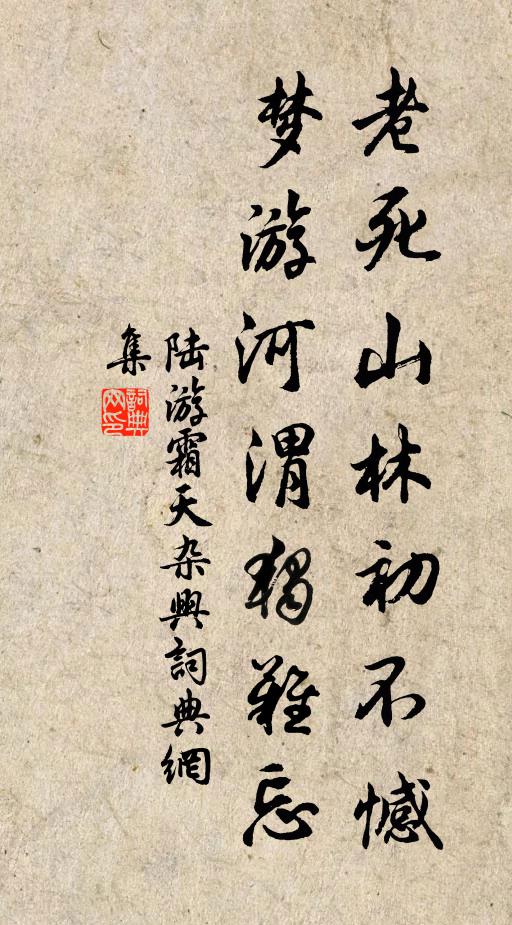 老死山林初不憾
梦游河渭独難忘
陆游霜天杂興詞典網
集
詞典
网印